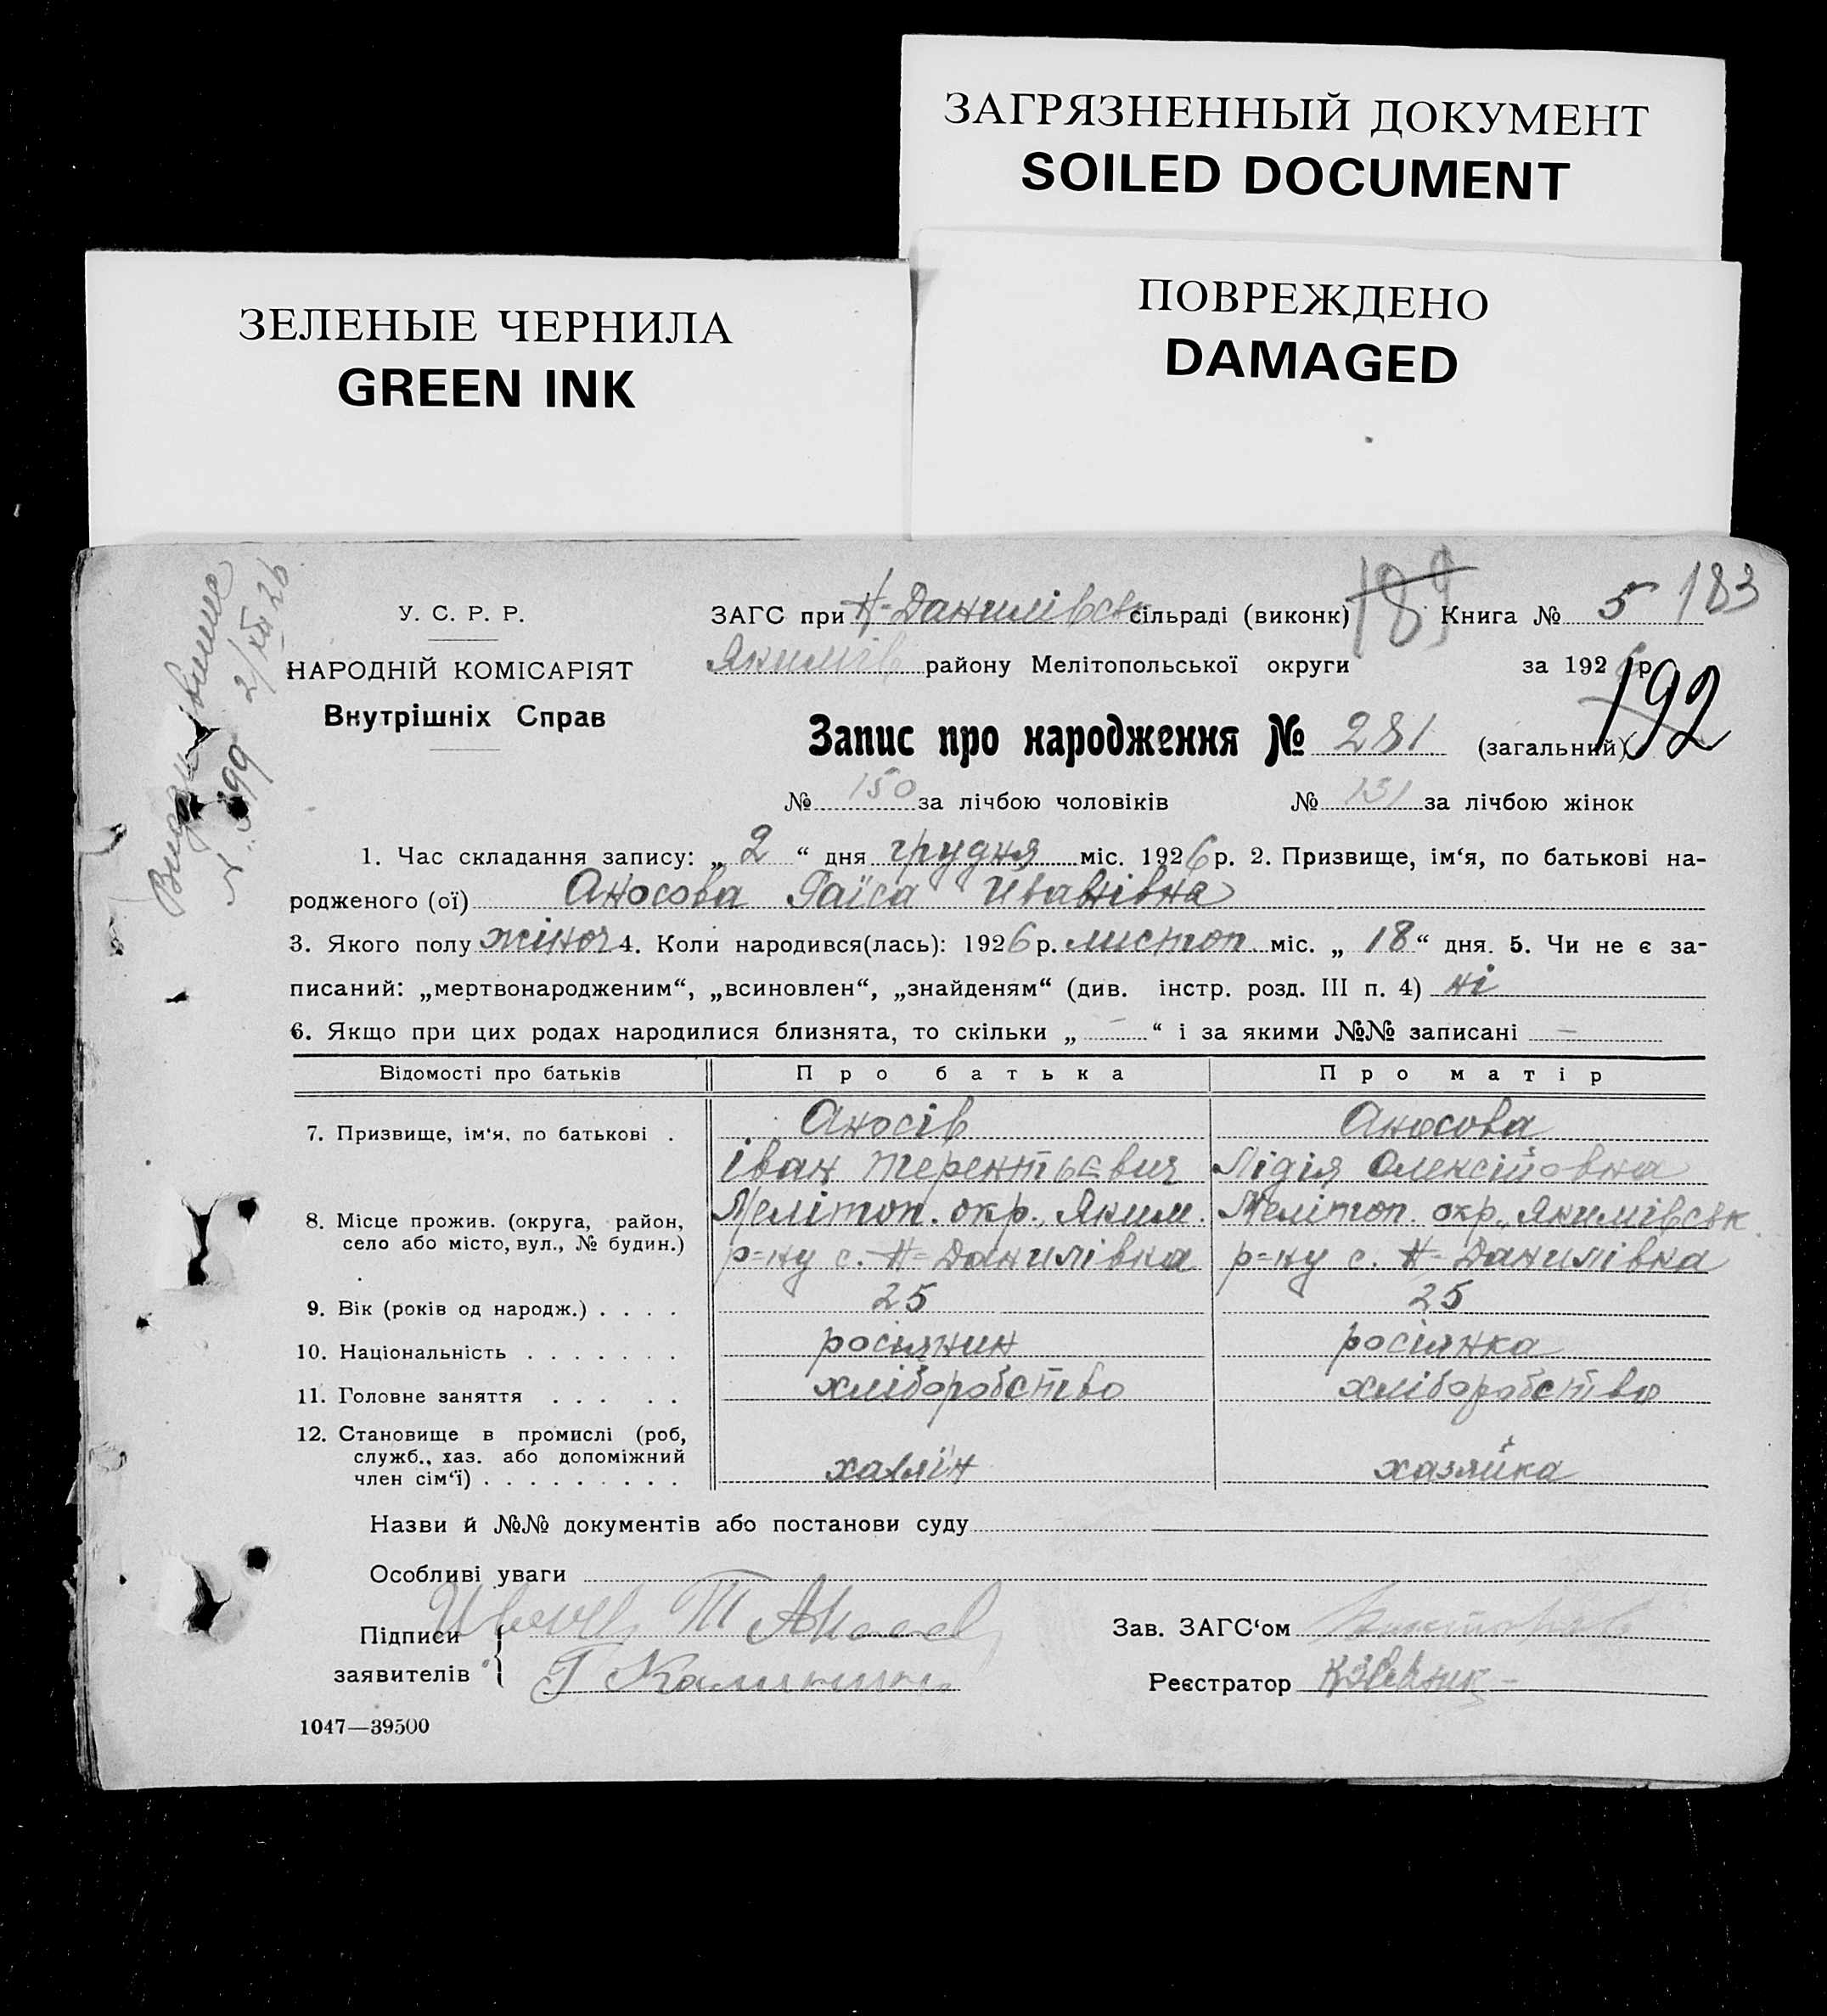 ЗАГРЯЗНЕННЫЙ ДОКУМЕНТ
SOILED DOCUMENT
ЗЕЛЕНЫЕ ЧЕРНИЛА
GREEN INK
ПОВРЕЖДЕНО
DAMAGED
2/XII 26
У. С. Р. Р.
НАРОДНІЙ КОМІСАРІЯТ
Внутрішніх Справ
ЗАГС при Н-Данилівськ сільраді (виконк) 189 Книга № 5 183
Якимів району Мелітопольської округи за 1926 р. 192
Запис про народження № 281 (загальний)
№ 150 за лічбою чоловіків № 131 за лічбою жінок
1. Час складання запису: „ 2 “ дня грудня міс. 1926 р. 2. Призвище, ім‘я, по батькові на-
родженого (ої) Аносова Раїса Иванівна
3. Якого полу жіноч 4. Коли народився(лась): 1926 р. листоп міс. „ 18 “ дня. 5. Чи не є за-
писаний: „мертвонародженим“, „всиновлен“, „знайденям“ (див. інстр. розд. III п. 4) ні
6. Якщо при цих родах народилися близнята, то скільки „ — “ і за якими №№ записані —
Відомості про батьків Про батька Про матір
7. Призвище, ім‘я, по батькові . Аносів Аносова
Іван Терентьєвич Лідія Олексійовна
8. Місце прожив. (округа, район, Меліт­оп. окр., Яким. Мелітоп. окр., Якимівськ
село або місто, вул., № будин.) р=ну с. Н=Данилівка р=ну с. Н=Данилівка
9. Вік (років од народж.) . . . . 25 25
10. Національність . . . . . . . росіянин росіянка
11. Головне заняття . . . . . хліборобство хліборобство
12. Становище в промислі (роб,
служб., хаз. або допоміжний
член сім‘ї) . . . . . . . . . хазяїн хазяйка
Назви й №№ документів або постанови суду
Особливі уваги
Підписи
заявителів
Зав. ЗАГС‘ом
Реєстратор
1047—39500